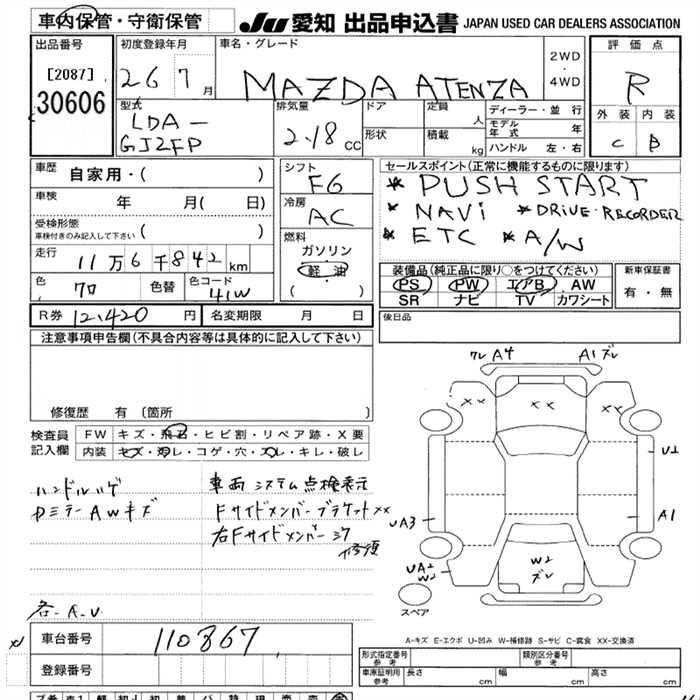 車内保管・守衛保管
JU 愛知 出品申込書 JAPAN USED CAR DEALERS ASSOCIATION
出品番号
[2087]
30606
初度登録年月
26 7 月
車名・グレード
MAZDA ATENZA
2WD
・
4WD
評価点
R
外装 内装
C B
型式
LDA-
GJ2FP
排気量
2.18 CC
ドア
形状
定員
人
積載
kg
ディーラー・並行
モデル年式 年
ハンドル 左・右
車歴
自家用・( )
車検
年 月( 日)
受検形態
車検付きのみ記入して下さい ( )
走行
11万6千842km
色
70
色替
色コード
41W
シフト
F6
冷房
AC
燃料
ガソリン
軽油
( )
セールスポイント(正常に機能するものに限ります)
* PUSH START
* NAVi * DRIVE・RECORDER
* ETC * A/W
装備品(純正品に限り○をつけてください)
PS PW エアB AW
SR ナビ TV カワシート
新車保証書
有・無
後日品
R券 12,420 円
名変期限 月 日
注意事項申告欄(不具合内容等は具体的に記入して下さい)
修復歴 有(箇所
検査員
記入欄
FW キズ・飛石・ヒビ割・リペア跡・X要
内装 キズ・汚レ・コゲ・穴・スレ・キレ・破レ
ハンドルハゲ
車両システム点検表示
Dミラー AWキズ
Fサイドメンバーブラケットxx
右Fサイドメンバーミク
修復
各-A.U
ワレ A4
A1 ズレ
xx
xx
xx
U2
A1
UA3
UA2
W2
W2
ズレ
スペア
A-キズ E-エクボ U-凹み W-補修跡 S-サビ C-腐食 XX-交換済
車台番号
110867
登録番号
形式指定番号
参考
類別区分番号
参考
車庫証明用
参考
長さ cm
幅 cm
高さ cm